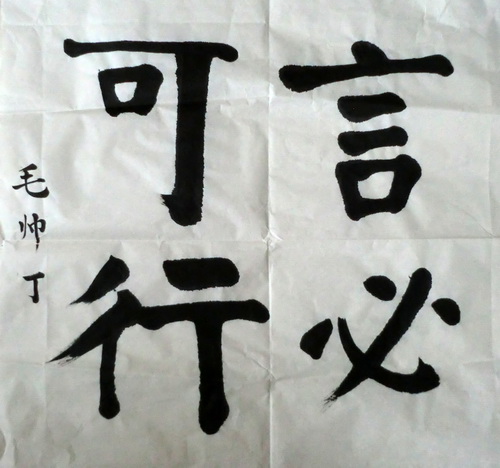 言必
可行
毛帅丁